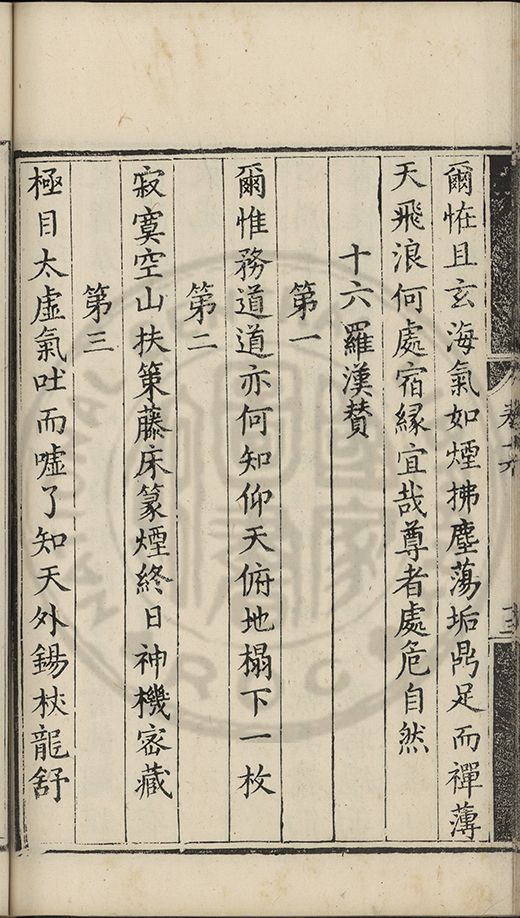 爾恠且玄海氣如煙拂塵蕩垢鼎足而禪薄
天飛浪何處宿緣宜哉尊者處危自然
十六羅漢贊
第一
爾惟務道道亦何知仰天俯地榻下一枚
第二
寂寞空山扶策藤床篆煙終日神機密藏
第三
極目太虛氣吐而噓了知天外錫杖龍舒